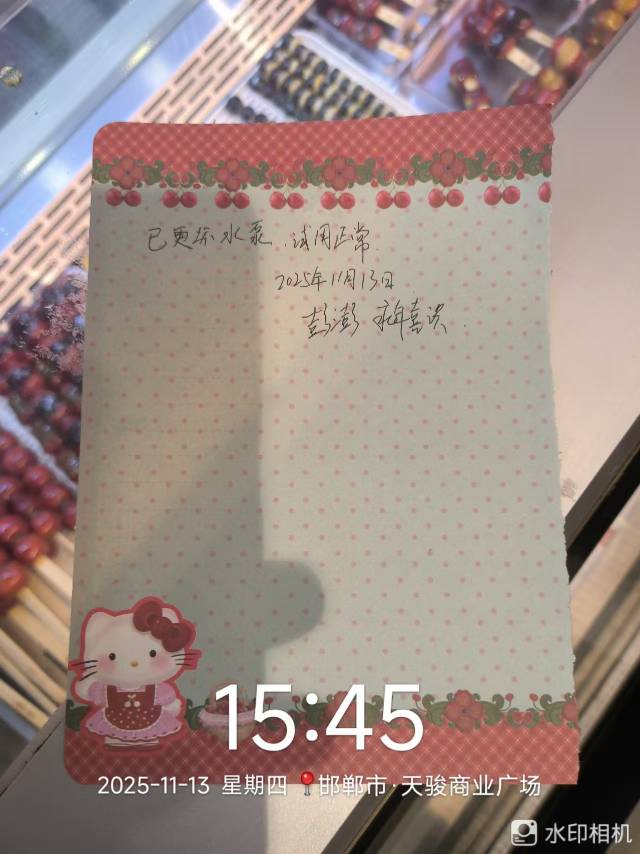 已更换水泵.试用正常.
2025年11月13日
彭澎
15:45
2025-11-13 星期四 邯郸市·天骏商业广场
水印相机